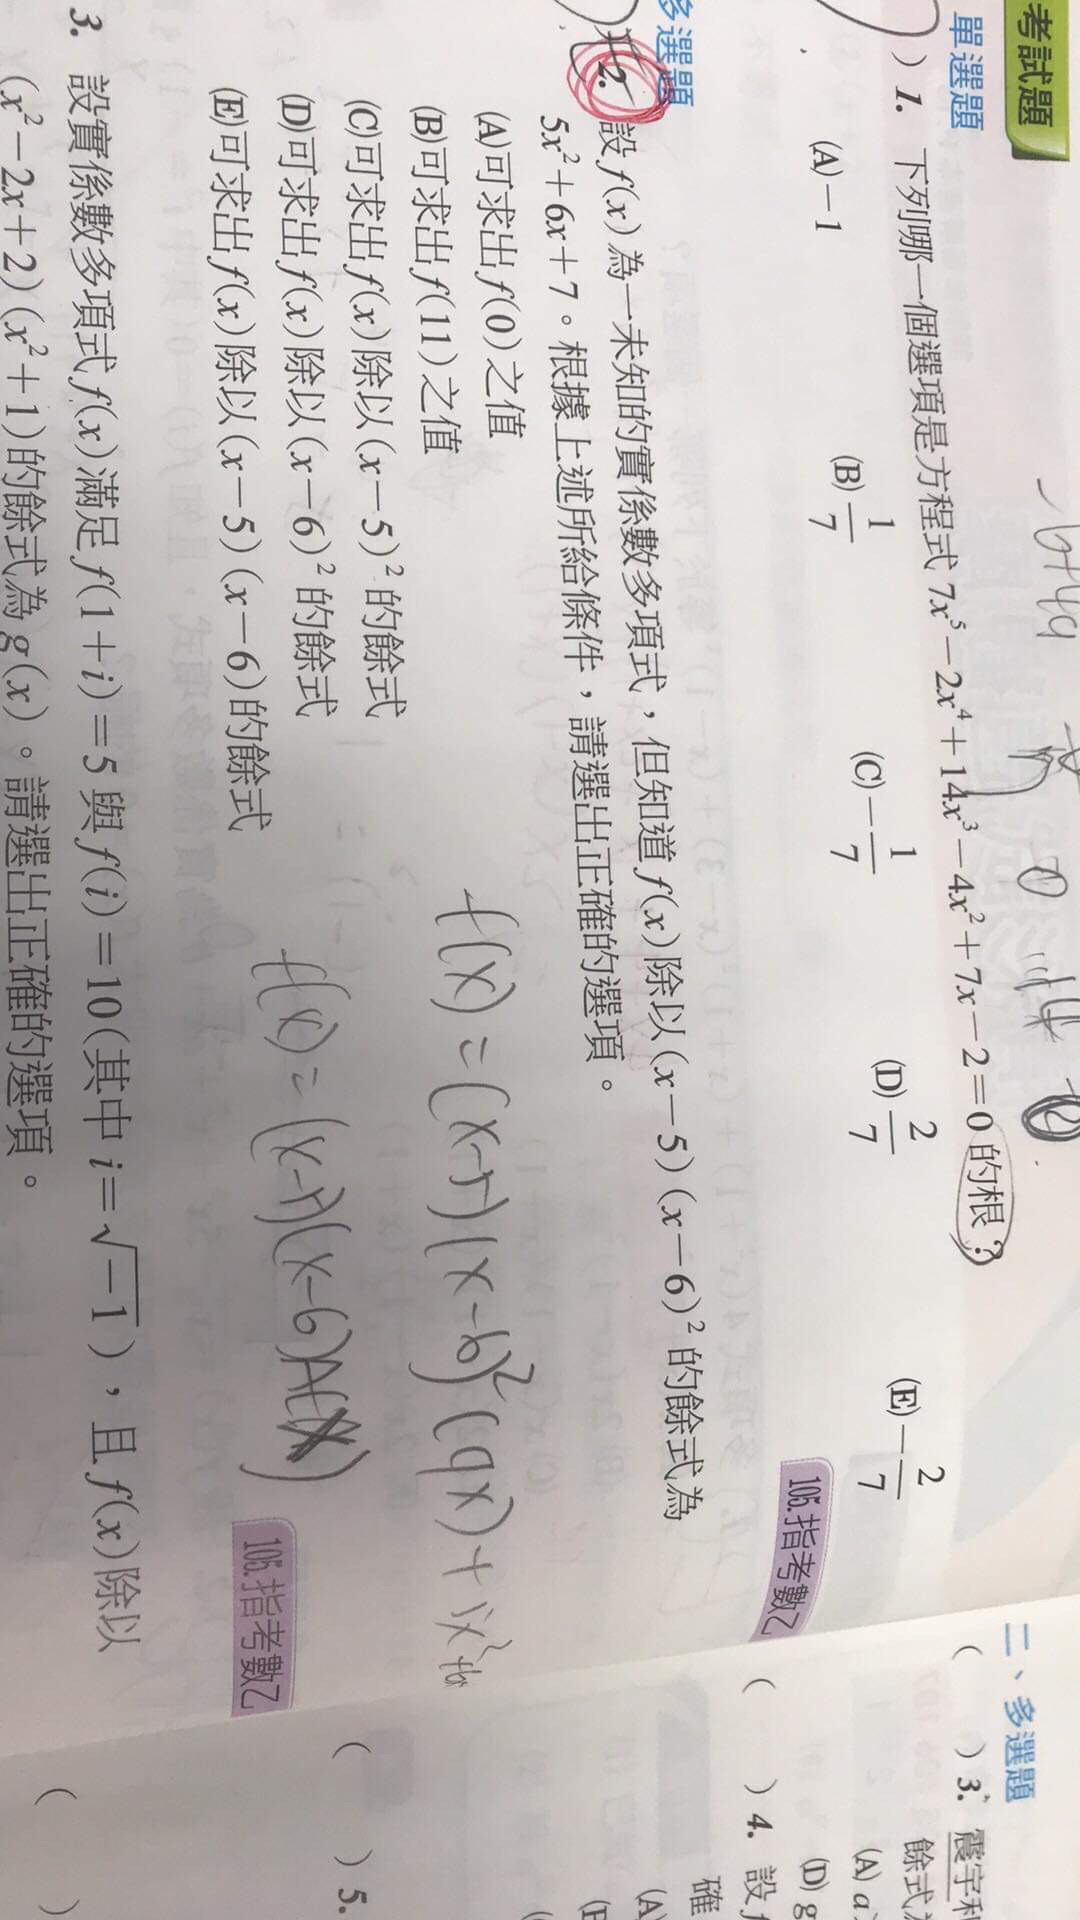 考試題
單選題
) 1. 下列哪一個選項是方程式 7x⁵－2x⁴＋14x³－4x²＋7x－2＝0 的根？
(A)－1 (B) 1/7 (C)－1/7 (D) 2/7 (E)－2/7
105.指考數乙
多選題
) 2. 設 f(x) 為一未知的實係數多項式，但知道 f(x) 除以 (x－5)(x－6)² 的餘式為
5x²＋6x＋7。根據上述所給條件，請選出正確的選項。
(A)可求出 f(0) 之值
(B)可求出 f(11) 之值
(C)可求出 f(x) 除以 (x－5)² 的餘式
(D)可求出 f(x) 除以 (x－6)² 的餘式
(E)可求出 f(x) 除以 (x－5)(x－6) 的餘式
f(x) = (x-5)(x-6)²(qx) +
f(x) = (x-5)(x-6)A(x)
105.指考數乙
3. 設實係數多項式 f(x) 滿足 f(1＋i)＝5 與 f(i)＝10(其中 i＝√－1)，且 f(x) 除以
(x²－2x＋2)(x²＋1) 的餘式為 g(x)。請選出正確的選項。
二、多選題
( ) 3. 震宇和
餘式
(A) a
(D) g
( ) 4. 設 f
確
(A)
( ) 5.
( )